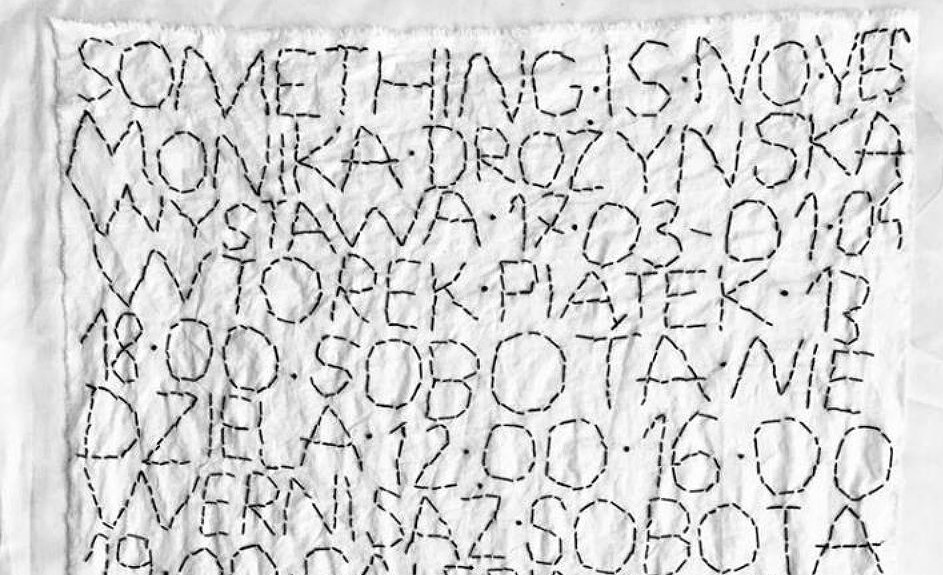 SOMETHING·IS·NO·YES
MONIKA·DROŻYŃSKA
WYSTAWA·17·03-01·04
WTOREK·PIĄTEK·13
18·00·SOBOTA·NIE
DZIELA·12·00·16·00
WERNISAŻ·SOBOTA